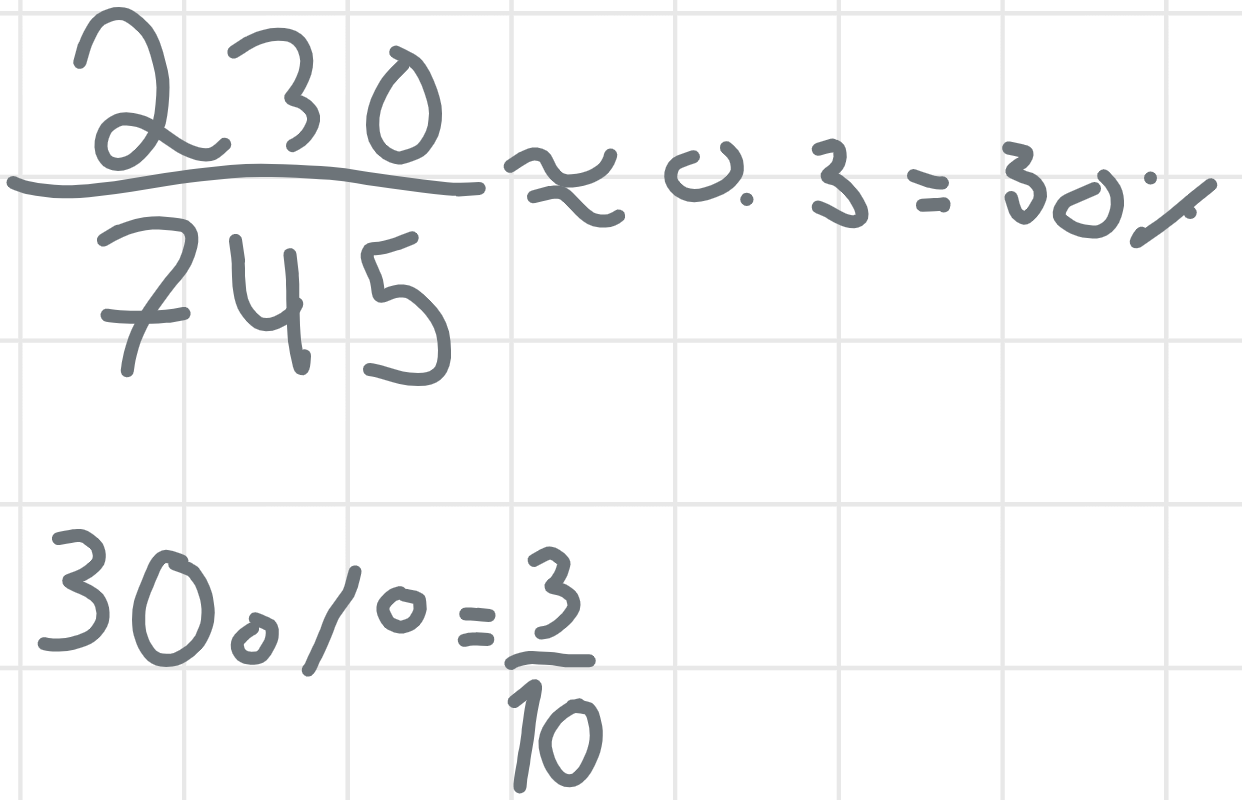 230/745 ≈ 0.3 = 30%
30% = 3/10